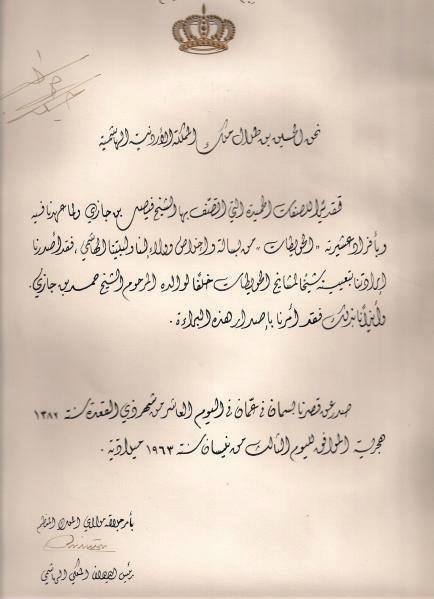 نحن الحسين بن طلال ملك المملكة الأردنية الهاشمية
فتقديراً للصفات الحميدة التي اتصف بها الشيخ فيصل بن جازي ولما عهدناه فيه
وبأفراد عشيرته "الحويطات" من بسالة واخلاص وولاء لنا ولبيتنا الهاشمي، فقد أصدرنا
إرادتنا بتعيينه شيخاً لمشايخ الحويطات خلفاً لوالده المرحوم الشيخ حمد بن جازي.
ولأننا بذلك فقد أمرنا بإصدار هذه البراءة.
صدر عن قصرنا بسمان في عمّان في اليوم العاشر من شهر ذي القعدة سنة ١٣٨٢
هجرية الموافق لليوم الثالث من نيسان سنة ١٩٦٣ ميلادية.
بأمر جلالة مولاي الملك المعظم
رئيس الديوان الملكي الهاشمي